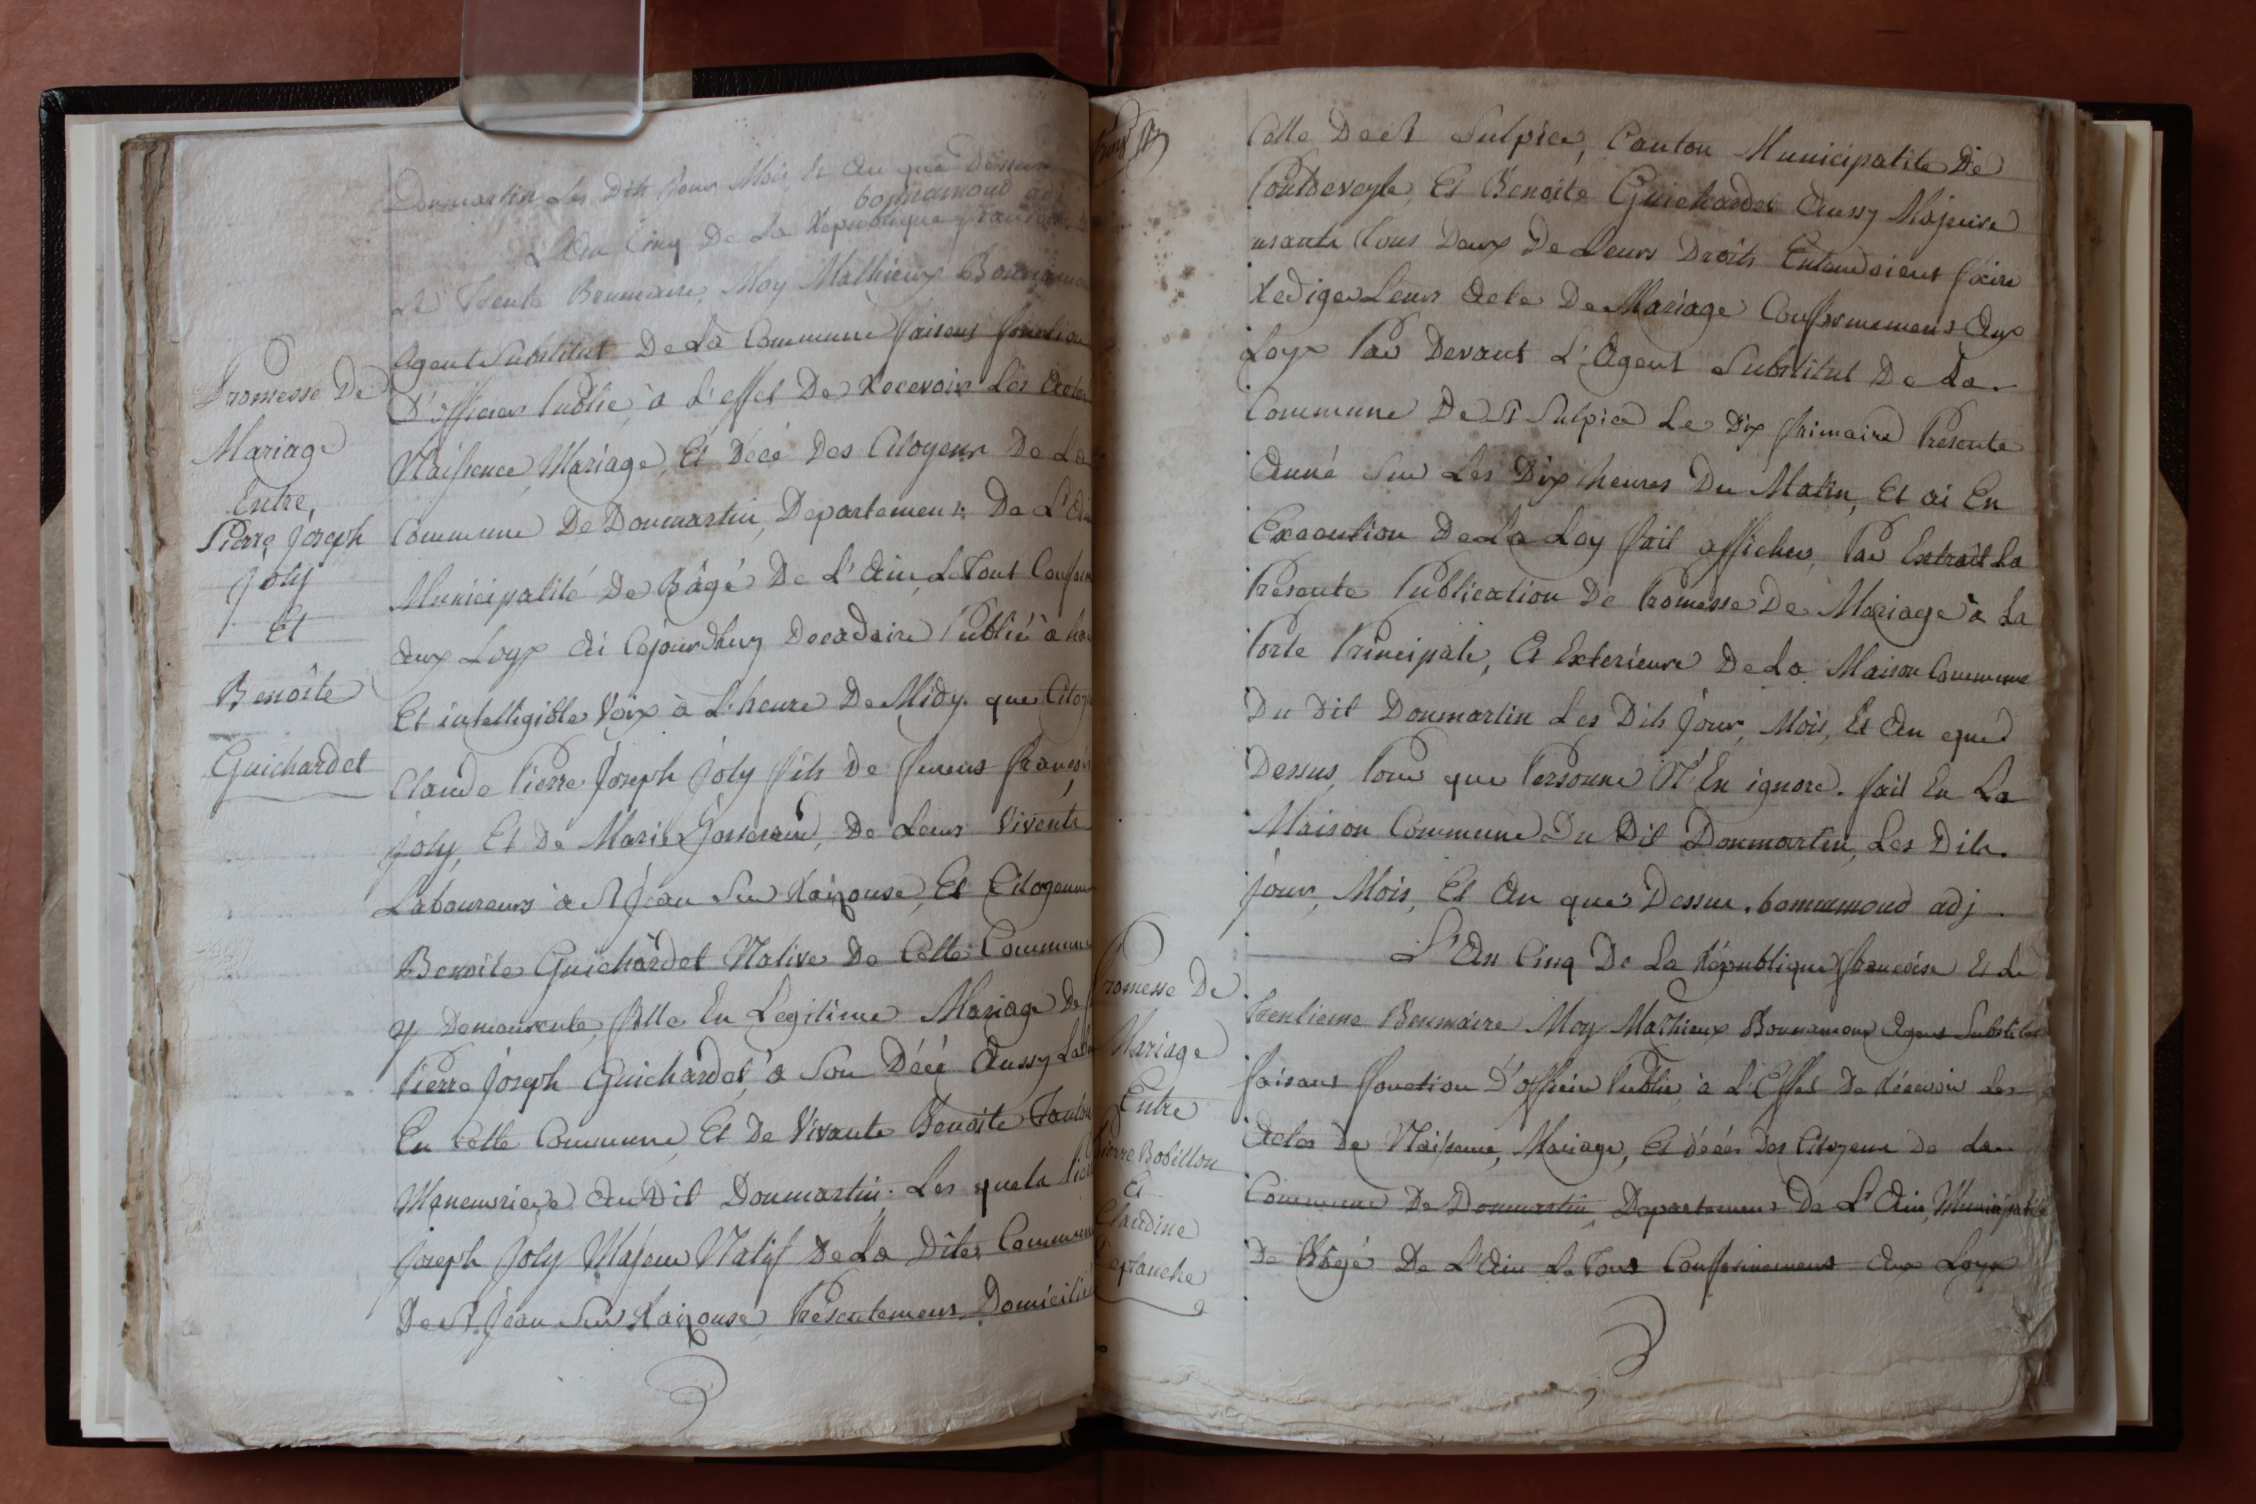 Donmartin Les Dits Jour Mois et An que Dessus
bonnamoud adj
L'An Cinq De La Republique francoise
Le Trente Brumaire, Moy Mathieux Bonnamou
Agent Substitut De La Commune faisant fonction
D'officier Public, à L'effet De Recevoir Les Actes
Naissence, Mariage, Et Décé Des Citoyens De La
Commune De Donmartin, Departement De L'Ain
Municipalité De Bâgé De L'Ain, Le Tout Conform
Aux Loyx Ai Cejourdhuy Decadaire Publié à hau
Et intelligible Voix à L'heure De Midy. que Citoy
Claude Pierre Joseph Joly fils De feu françois
Joly, Et De Marie Josserand, De Leurs Vivents
Laboureurs à St Jean Sur Raizouse, Et Citoyenne
Benoite Guichardet Native De Cette Commune
y Demeurente, fille En Legitime Mariage De
Pierre Joseph Guichardet, à Son Décé Aussy Lab
En Cette Commune, Et De Vivante Benoite
Maneuvriere Au Dit Donmartin. Les quels Pier
Joseph Joly Majeur Natif De La Dite Commune
De St Jean Sur Raizouse, Presentement Domicilié
Promesse De
Mariage
Entre,
Pierre Joseph
Joly
Et
Benoîte
Guichardet
Celle De St Sulpice, Canton Municipalite De
Pontdeveyle, Et Benoite Guichardet Aussy Majeure
usante Tous Deux De Leurs Droits Entendoient faire
Rediger Leurs Acte De Mariage Confformement Aux
Loyx Par Devant L'Agent Substitut De La
Commune De St Sulpice Le Dix frimaire Presente
Anné Sur Les Dix heures Du Matin, Et ai En
Execution De La Loy fait afficher, Par Extrait La
Presente Publication De Promesse De Mariage à La
Porte Principale, Et Exterieure De La Maison Commune
Du Dit Donmartin Les Dits Jour, Mois, Et An que
Dessus, Pour que Personne N'En ignore. fait En La
Maison Commune Du Dit Donmartin, Les Dits
Jour, Mois, Et An que Dessus. bonnamoud adj.
L'An Cinq De La République francoise Et Le
Trentieme Brumaire Moy Mathieux Bonnamoux Agent Substitut
faisant fonction D'officier Public à L'Effet De Recevoir Les
Actes De Naissance, Mariage, Et décés Des Citoyens De La
Commune De Donmartin, Departement De L'Ain, Municipalité
De Bâgé De L'Ain Le Tout Confformement Aux Loyx
Promesse De
Mariage
Entre
Pierre Bobillon
Et
Claudine
Deplanche